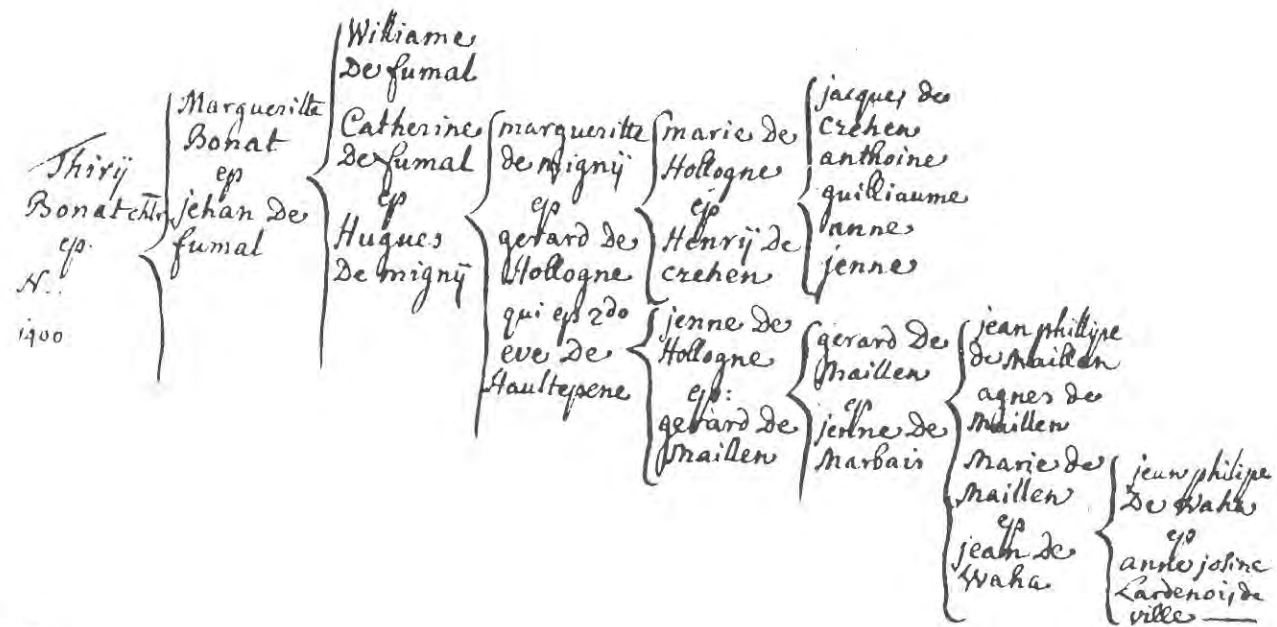 Thirÿ
Bonat chlr
ep.
N..
1400
Margueritte
Bonat
ep
jehan De
fumal
Williame
De fumal
Catherine
De fumal
ep
Hugues
De mignÿ
margueritte
de mignÿ
ep
gerard de
Hollogne
qui ep 2do
eve De
Haultepene
marie de
Hollogne
ép
Henrÿ de
crehen
jenne de
Hollogne
ep:
gerard de
Maillen
jacques de
crehen
anthoine
guilliaume
anne
jenne
gerard De
Maillen
ep
jenne de
Marbais
jean phillipe
de Maillen
agnes de
Maillen
Marie de
Maillen
ep
jean de
Waha
jean philipe
De Waha
ep
anne josine
Lardenois de
ville